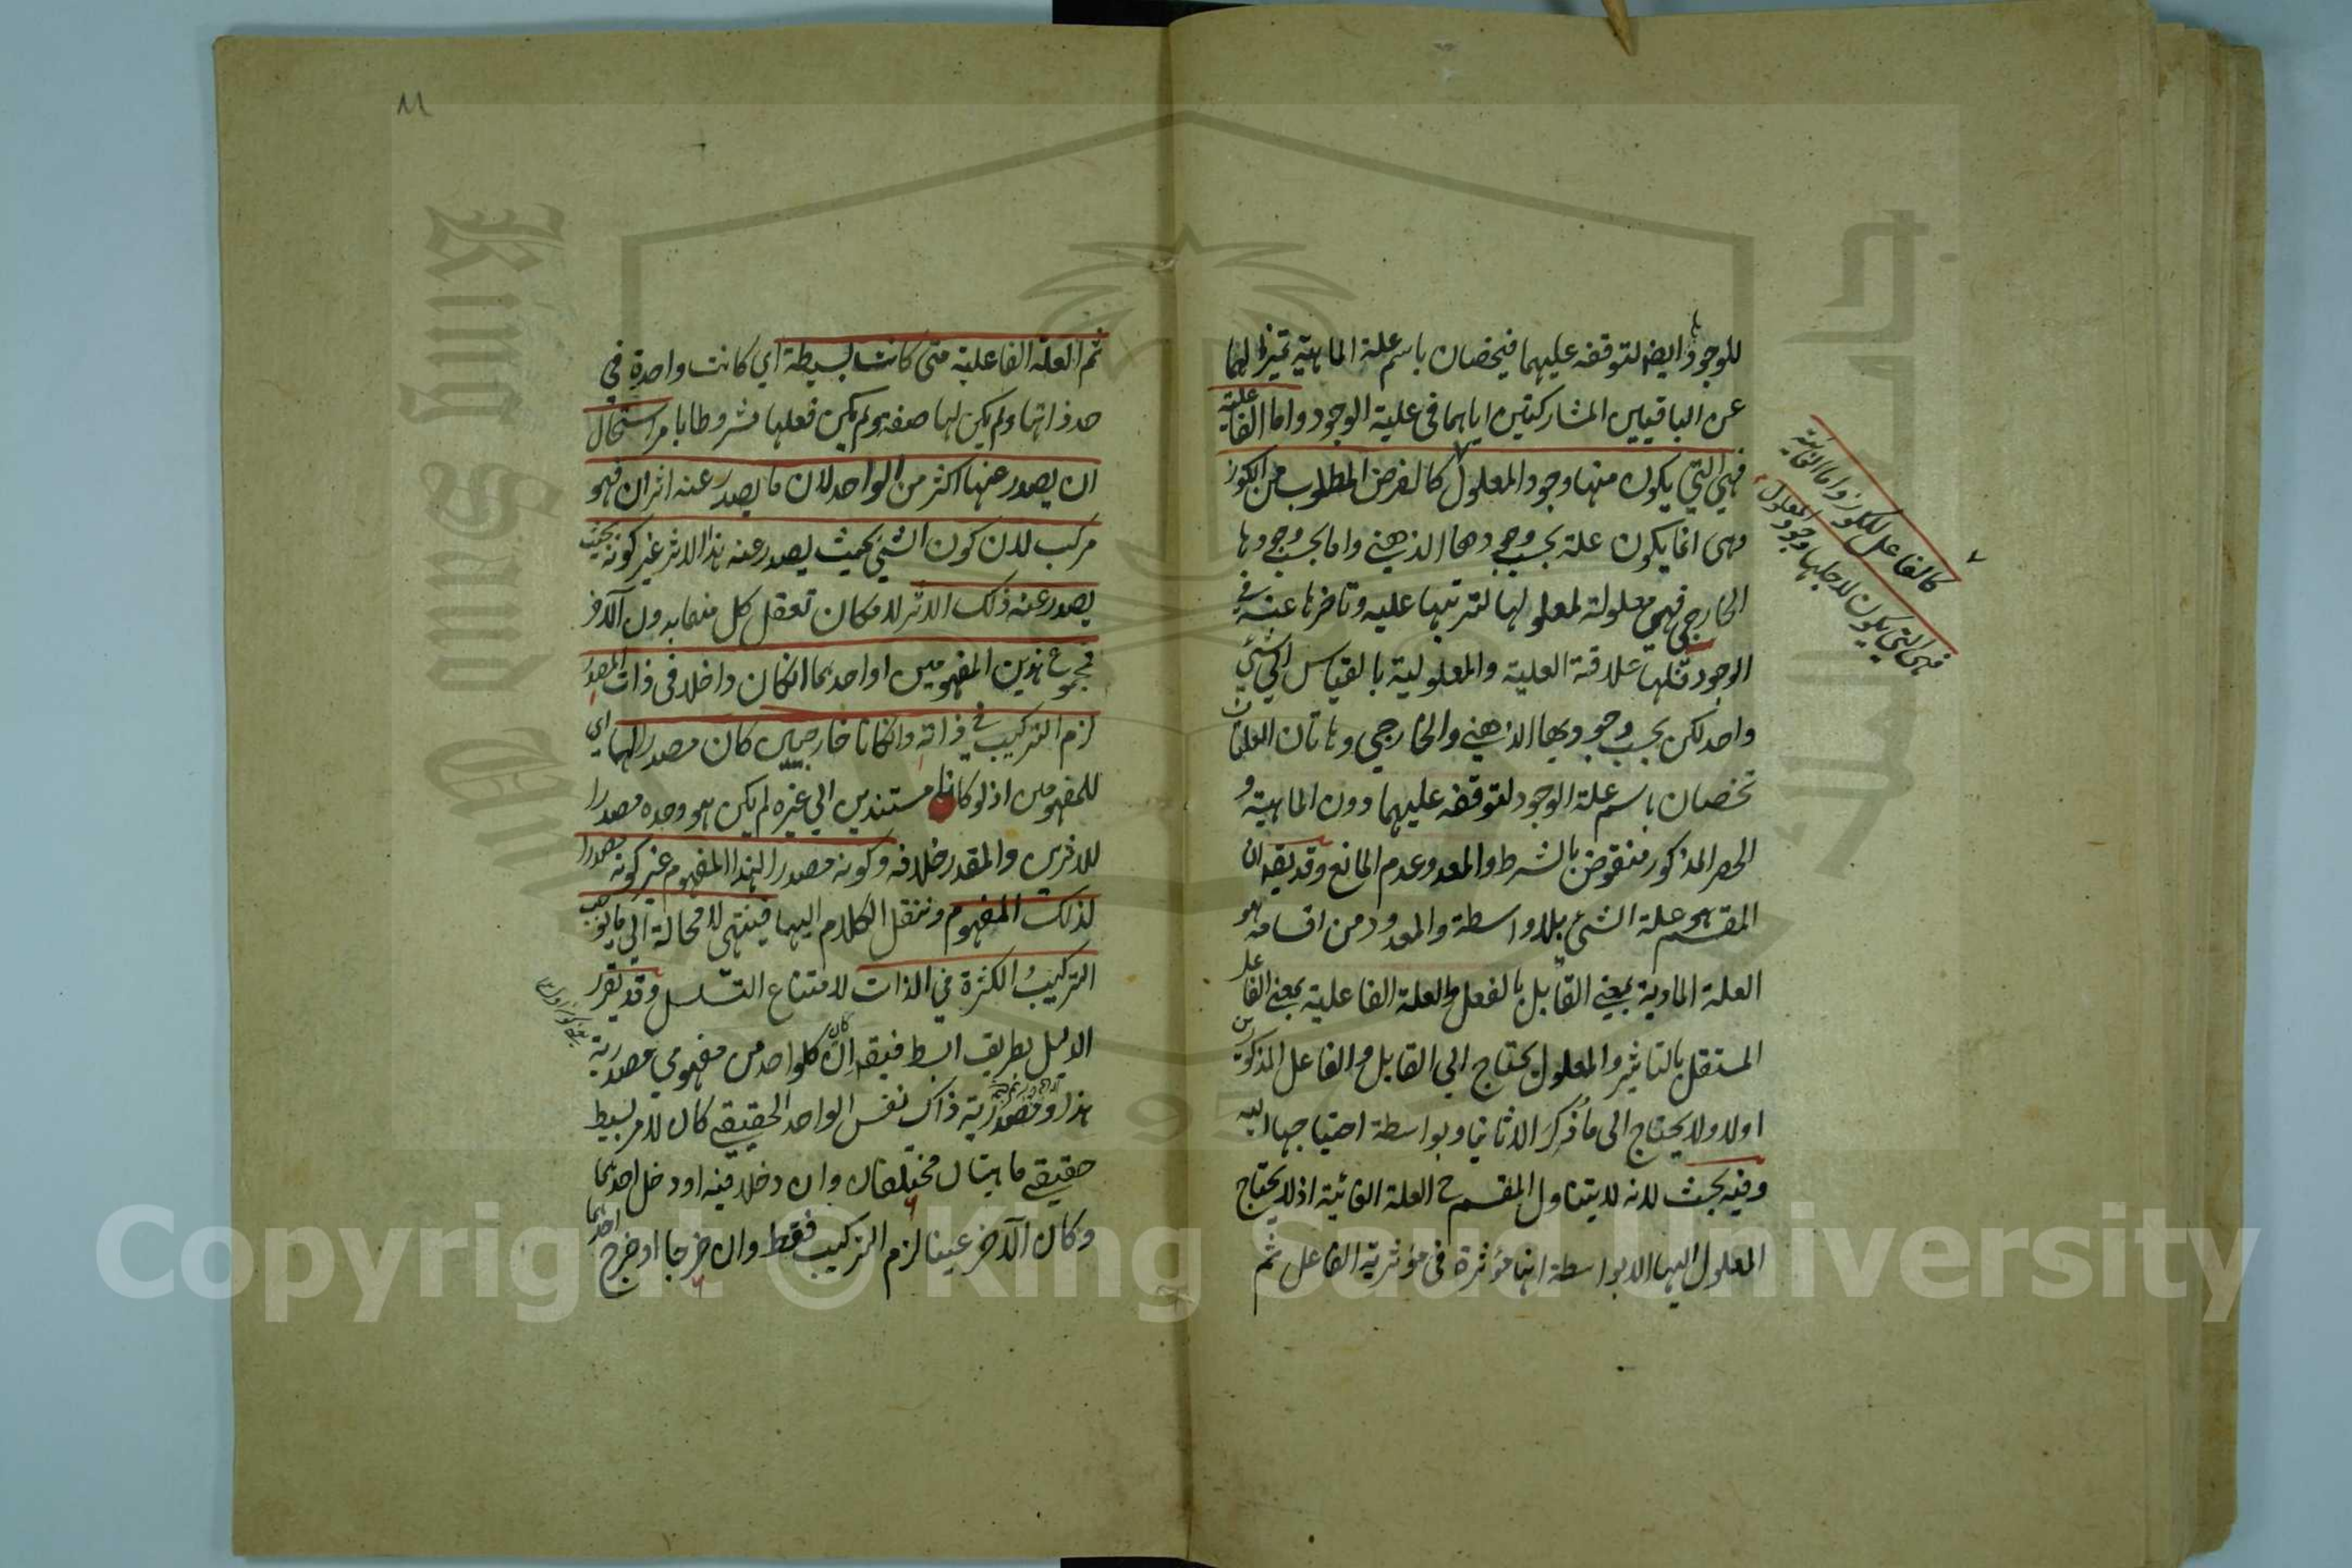 للوجود ايضا لتوقفه عليهما فيخصان باسم علة الماهية تميزا لهما
عن الباقيين المشاركتين اياهما في علية الوجود واما الفاعلية
فهي التي يكون منها وجود المعلول كالغرض المطلوب من الكوز
وهي انما يكون علة بحسب وجودها الذهني واما بحسب وجودها
الخارجي فهي معلولة لمعلولها لترتبها عليه وتاخرها عنه في
الوجود فلها علاقة العلية والمعلولية بالقياس الى شئ
واحد لكن بحسب وجوديها الذهني والخارجي وهاتان العلتان
تخصان باسم علة الوجود لتوقفه عليهما دون الماهية و
الحصر المذكور منقوض بالشرط والمعد وعدم المانع وقد يقه ان
المقسم هو علة الشئ بلا واسطة والمعدود من اقسامه هو
العلة المادية بمعنى القابل بالفعل والعلة الفاعلية بمعنى الفاعل
المستقل بالتاثير والمعلول يحتاج الى القابل والفاعل المذكورين
اولا ولا يحتاج الى ما ذكر الا ثانيا وبواسطة احتياجها اليه
وفيه بحث لانه لا يتناول المقسم ح العلة الغائية اذ لا يحتاج
المعلول اليها الا بواسطة انها مؤثرة في مؤثرية الفاعل ثم
كالفاعل للكوز واما الغائية
فهي التي يكون لاجلها وجود المعلول
١١
ثم العلة الفاعلية متى كانت بسيطة اي كانت واحدة في
حد ذاتها ولم يكن لها صفة ولم يكن فعلها مشروطا بامر استحال
ان يصدر عنها اكثر من الواحد لان ما يصدر عنه اثران فهو
مركب لان كون الشئ بحيث يصدر عنه هذا الاثر غير كونه بحيث
يصدر عنه ذلك الاثر لامكان تعقل كل منهما بدون الآخر
فمجموع هذين المفهومين او احدهما ان كان داخلا في ذات المصدر
لزم التركيب في ذاته وان كانا خارجيين كان مصدرا لهما اي
للمفهومين اذ لو كانا مستندين الى غيره لم يكن هو وحده مصدرا
للاثرين والمقدر خلافه وكونه مصدرا لهذا المفهوم غير كونه مصدرا
لذلك المفهوم وننقل الكلام اليهما فينتهي لا محالة الى ما يوجب
التركيب والكثرة في الذات لامتناع التسلسل وقد يقرر
الدليل بطريق ابسط فيقه ان كان كلواحد من مفهومي مصدرية
هذا ومصدرية ذاك نفس الواحد الحقيقي كان لامر بسيط
حقيقي ماهيتان مختلفتان وان دخلا فيه او دخل احدهما
وكان الآخر عينا لزم التركيب فقط وان خرجا او خرج احدهما